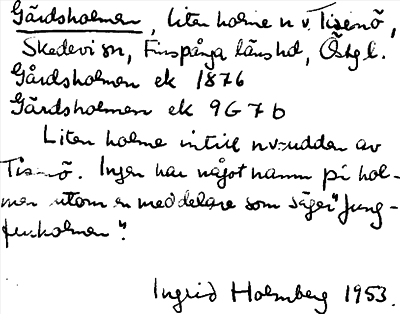 Gårdsholmen, liten holme n v. Tisenö,
Skedevi sn, Finspånga läns hd, Östg l.
Gårdsholmen ek 1876
Gårdsholmen ek 9G 7b
Liten holme intill nv-udden av
Tisenö. Ingen har något namn på hol-
men utom en meddelare som säger "Jung-
fruholmen".
Ingrid Holmberg 1953.